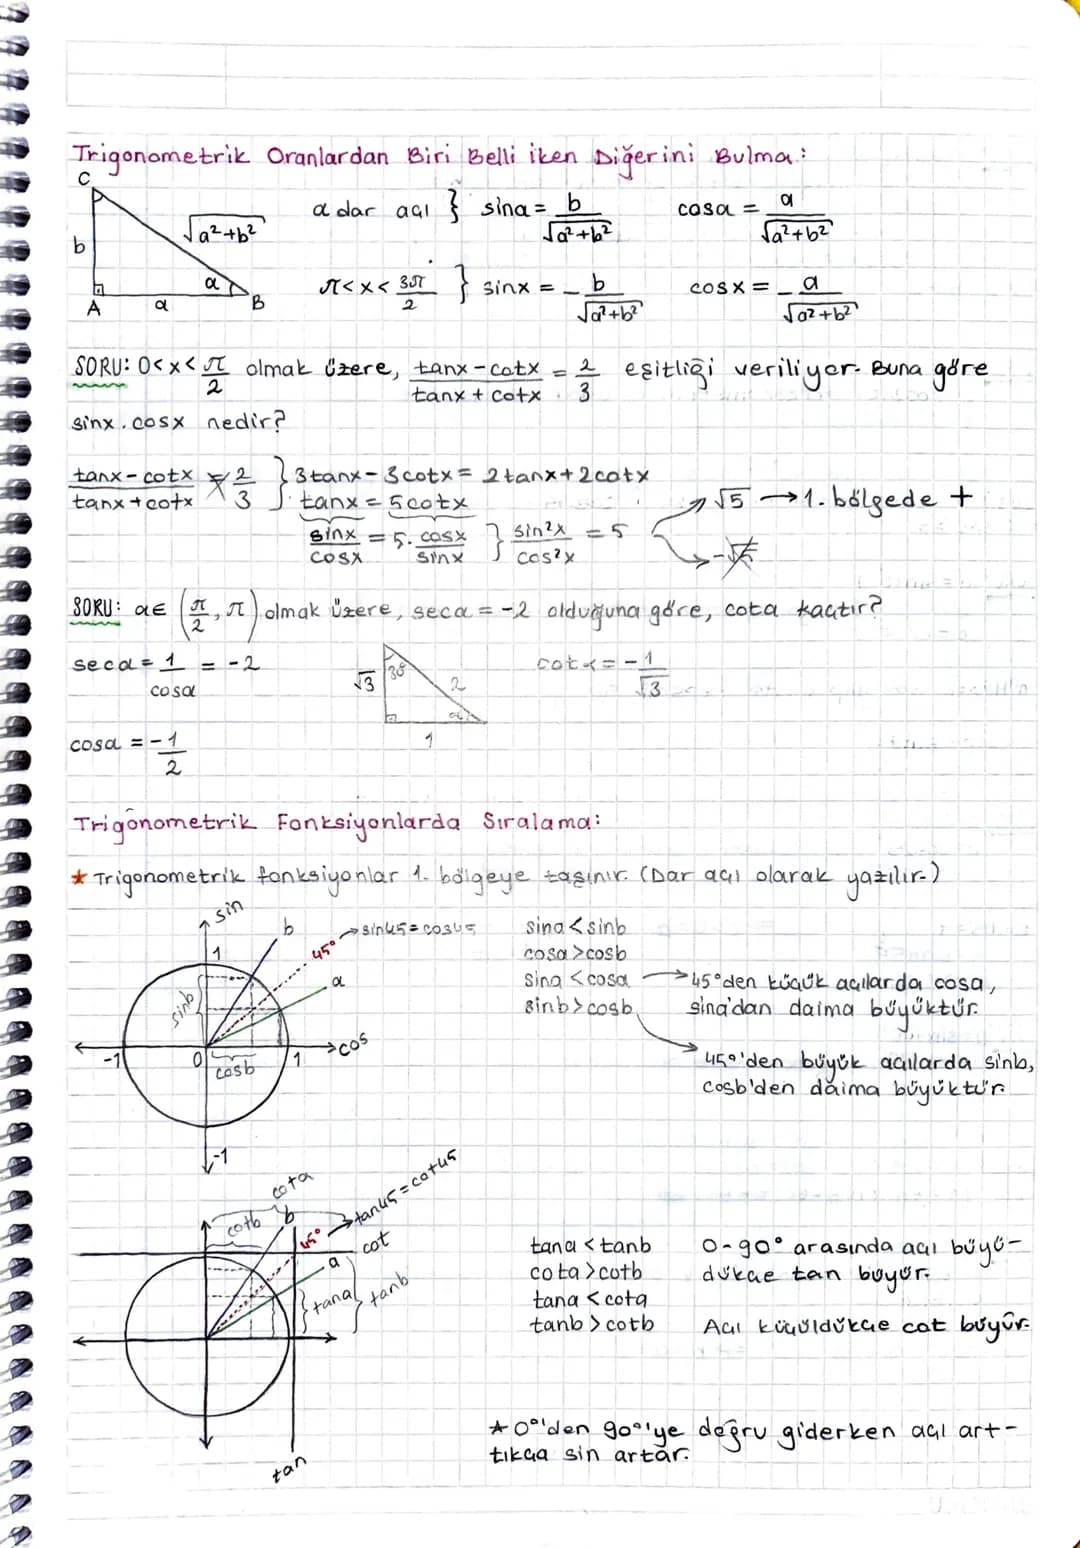 Trigonometrik Oranlardan Biri Belli iken Diğerini Bulma:
C
b
√a²+b²
α
A a B
α dar açı } sinα = b/√a²+b² cosα = a/√a²+b²
π<x<3π/2 } sinx = -b/√a²+b² cosx = -a/√a²+b²
SORU: 0<x<π/2 olmak üzere, tanx-cotx/tanx+cotx = 2/3 eşitliği veriliyor. Buna göre
sinx.cosx nedir?
tanx-cotx/tanx+cotx = 2/3 } 3tanx-3cotx = 2tanx+2cotx
tanx = 5cotx
sinx/cosx = 5.cosx/sinx } sin²x/cos²x = 5
√5 → 1. bölgede +
-√5
SORU: α∈(π/2, π) olmak üzere, secα = -2 olduğuna göre, cotα kaçtır?
secα = 1/cosα = -2
√3 30 2 α 1
cotα = -1/√3
cosα = -1/2
Trigonometrik Fonksiyonlarda Sıralama:
★ Trigonometrik fonksiyonlar 1. bölgeye taşınır. (Dar açı olarak yazılır.)
sin
b
1
45°
→sin45=cos45
a
sinb
-1 0 cosb 1 cos
-1
sina<sinb
cosa>cosb
sina<cosa → 45°den küçük açılarda cosa,
sina'dan daima büyüktür.
sinb>cosb
→ 45°'den büyük açılarda sinb,
cosb'den daima büyüktür.
cota
cotb b
45°
→tan45=cot45
cot
a
tana
tanb
tan
tana<tanb
cota>cotb
tana<cota
tanb>cotb
0-90° arasında açı büyü-
dükçe tan büyür.
Açı küçüldükçe cot büyür.
★0°'den 90°'ye doğru giderken açı art-
tıkça sin artar.